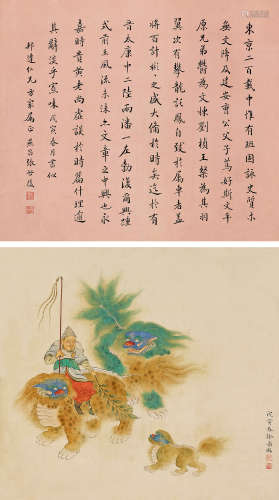 東京二百載中惟有班固詠史質木
無文降及建安曹公父子篤好斯文平
原兄弟鬱為文棟劉楨王粲為其羽
翼次有攀龍託鳳自致於屬車者蓋
將百計彬彬之盛大備於時矣迄於有
晉太康中二陸兩潘一左勃復興踵
武前王風流未沫亦文章之中興也永
嘉時貴黃老尚虛談於時篇什理過
其辭淡乎寡味戊寅春月書似
邦達仁兄方家屬正 張
戊寅春徐